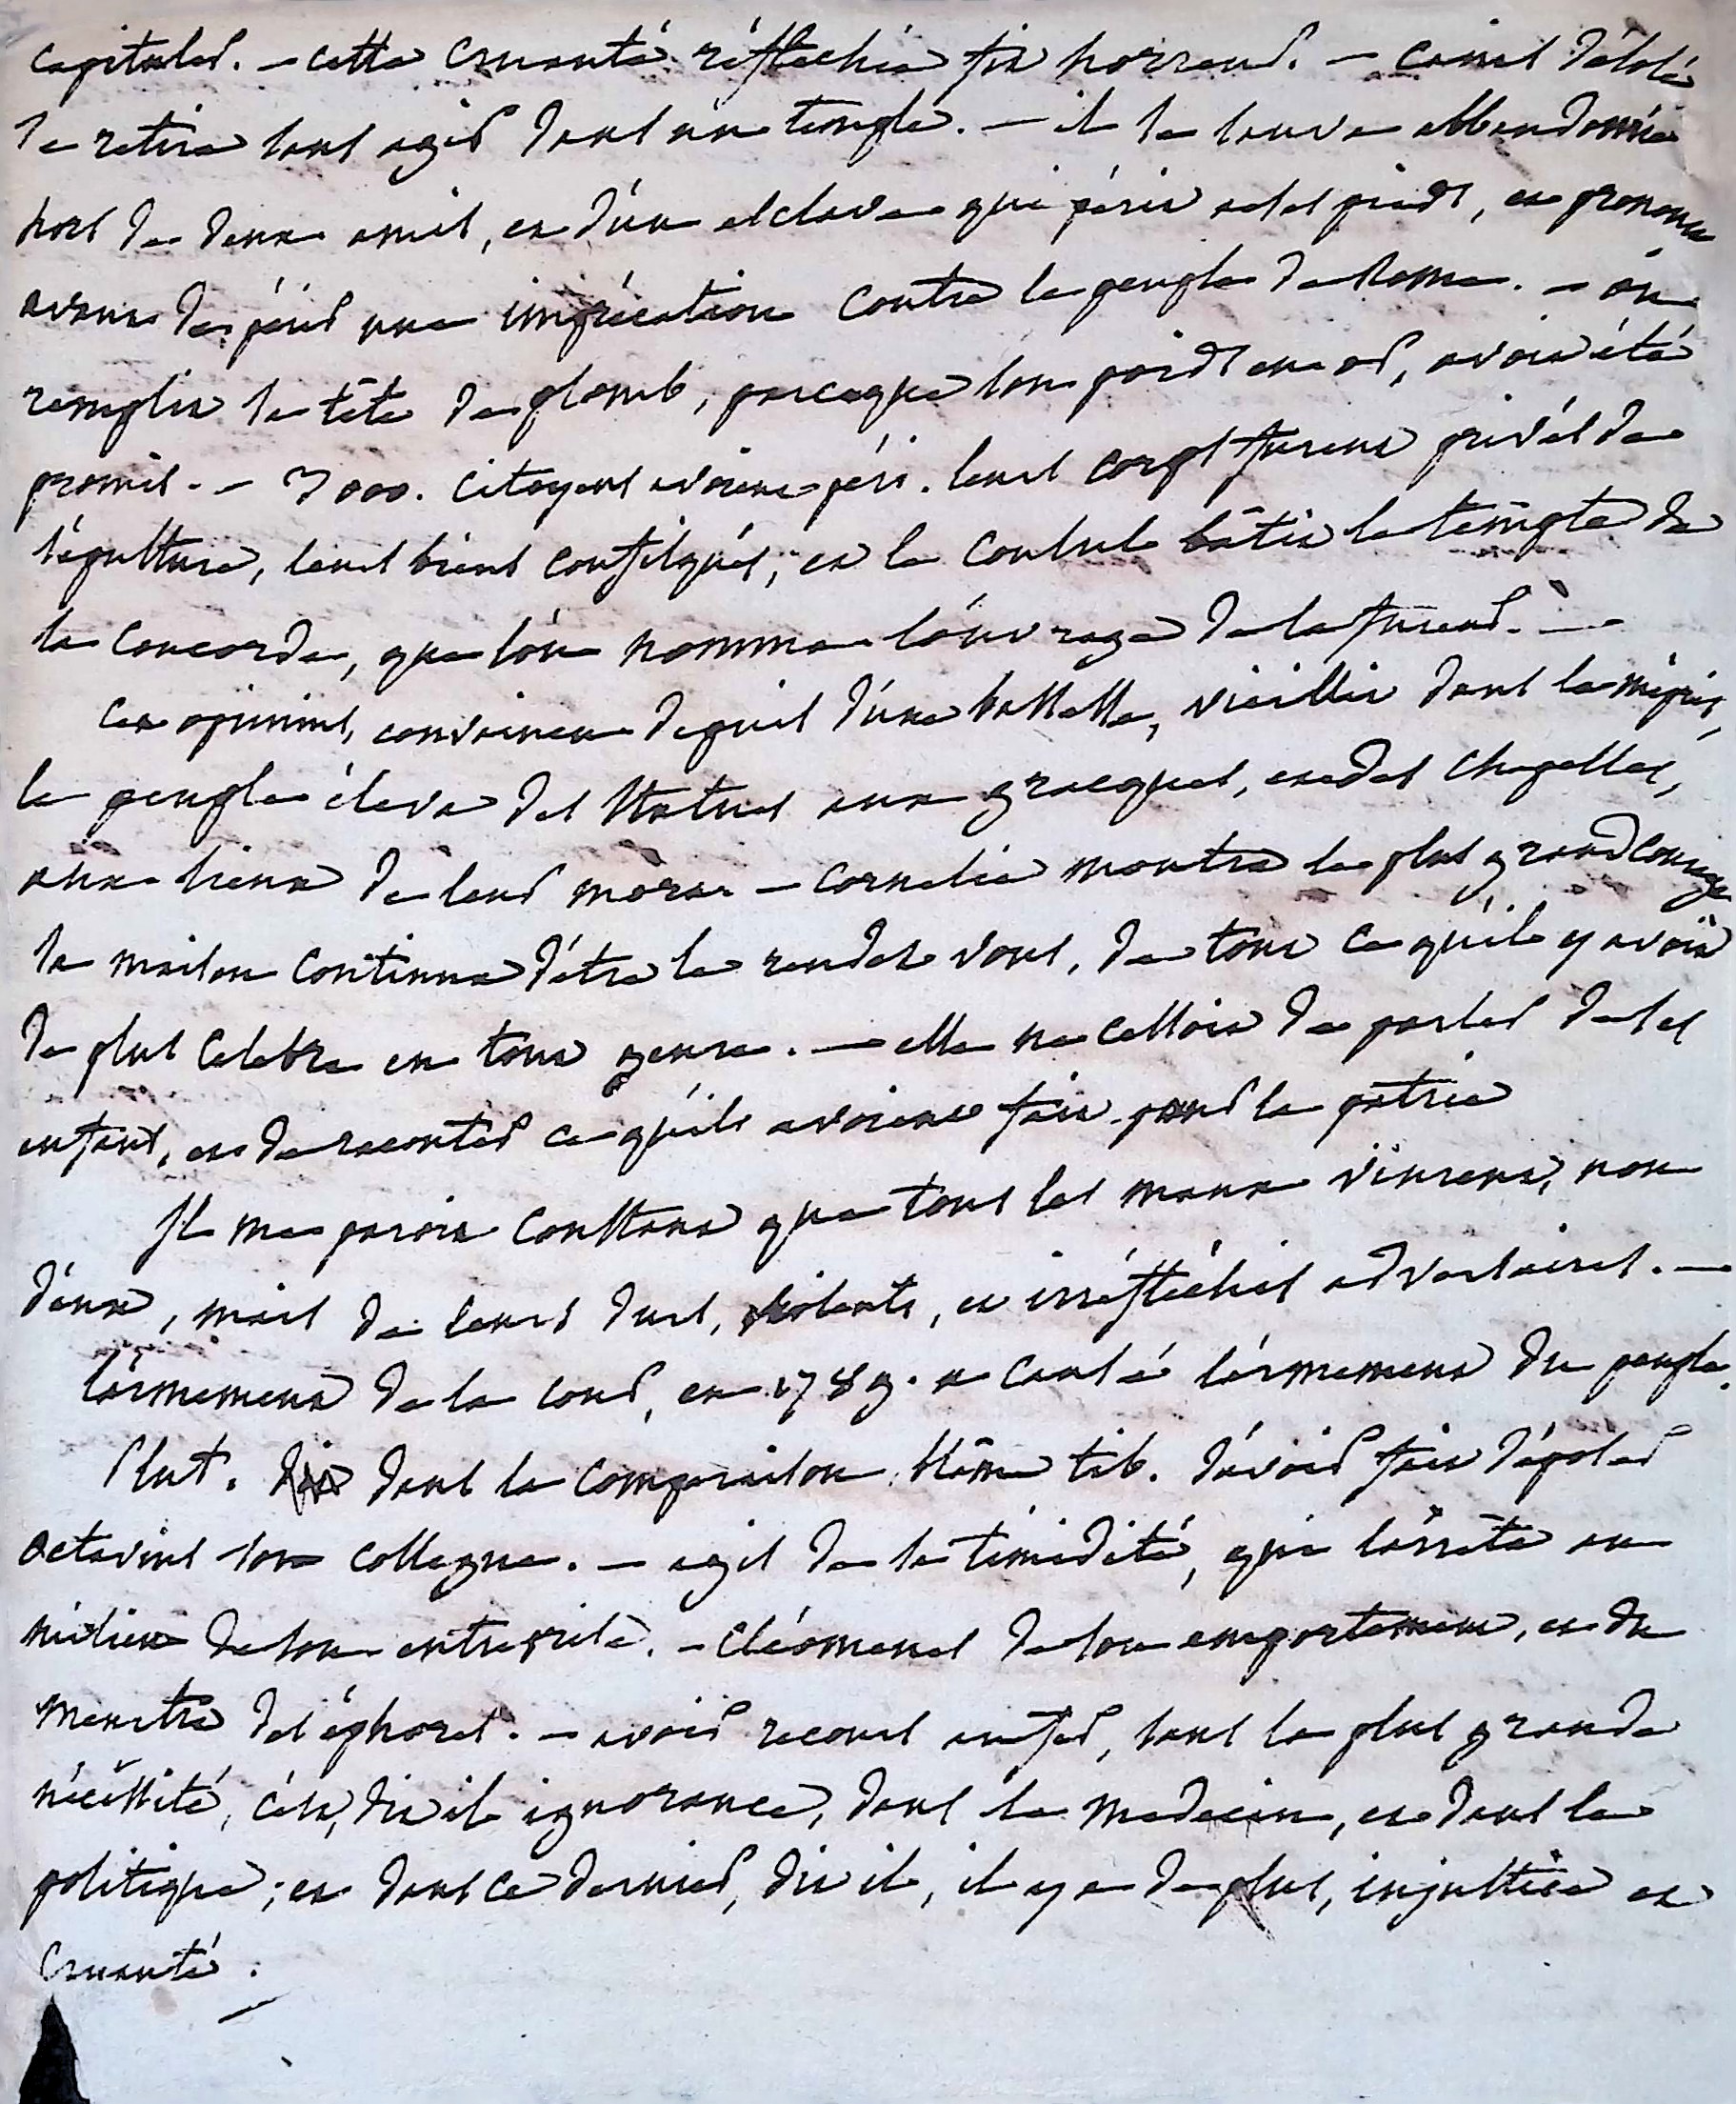 capituler. – cette cruauté réfléchie fit horreur. – caius désolé
se retira sans agir dans un temple. – il se sauva abbandonné
hors de deux amis, et d'un esclave qui périt a ses pieds, et prononça
avant de périr une imprécation contre le peuple de Rome. – on
remplit sa tête de plomb, parceque son poids en or, avoit été
promis. – 3000. citoyens avoient péri. leurs corps furent privés de
sépulture, leurs biens confisqués; et le consul bâtit le temple de
la concorde, que l'on nomma l'ouvrage de la fureur. –
Cet opimius, convaincu depuis d'une bassesse, vieillit dans le mépris,
le peuple éleva des statues aux gracques, et des chapelles,
aux lieux de leur mort. – cornelie montra le plus grand courage
sa maison continua d'être le rendez vous, de tout ce qu'il y avoit
de plus celebre en tout genre. – elle ne cessoit de parler de ses
enfans, et de raconter ce qu'ils avoient fait pour la patrie
Il me paroit constant que tous les maux vinrent, non
d'eux, mais de leurs durs, violents, et irréfléchis adversaires. –
l'armement de la cour, en 1789. a causé l'armement du peuple.
Plut. dans la comparaison blâme tib. d'avoir fait déposer
octavius son collegue. – agis de sa timidité, qui l'arrêta au
milieu de son entreprise. – cléomenes de son emportement, et du
meurtre des éphores. – avoir recours au fer, sans la plus grande
nécessité, c'est, dit il ignorance, dans la medecine, et dans la
politique; et dans ce dernier, dit il, il y a de plus, injustice et
cruauté.